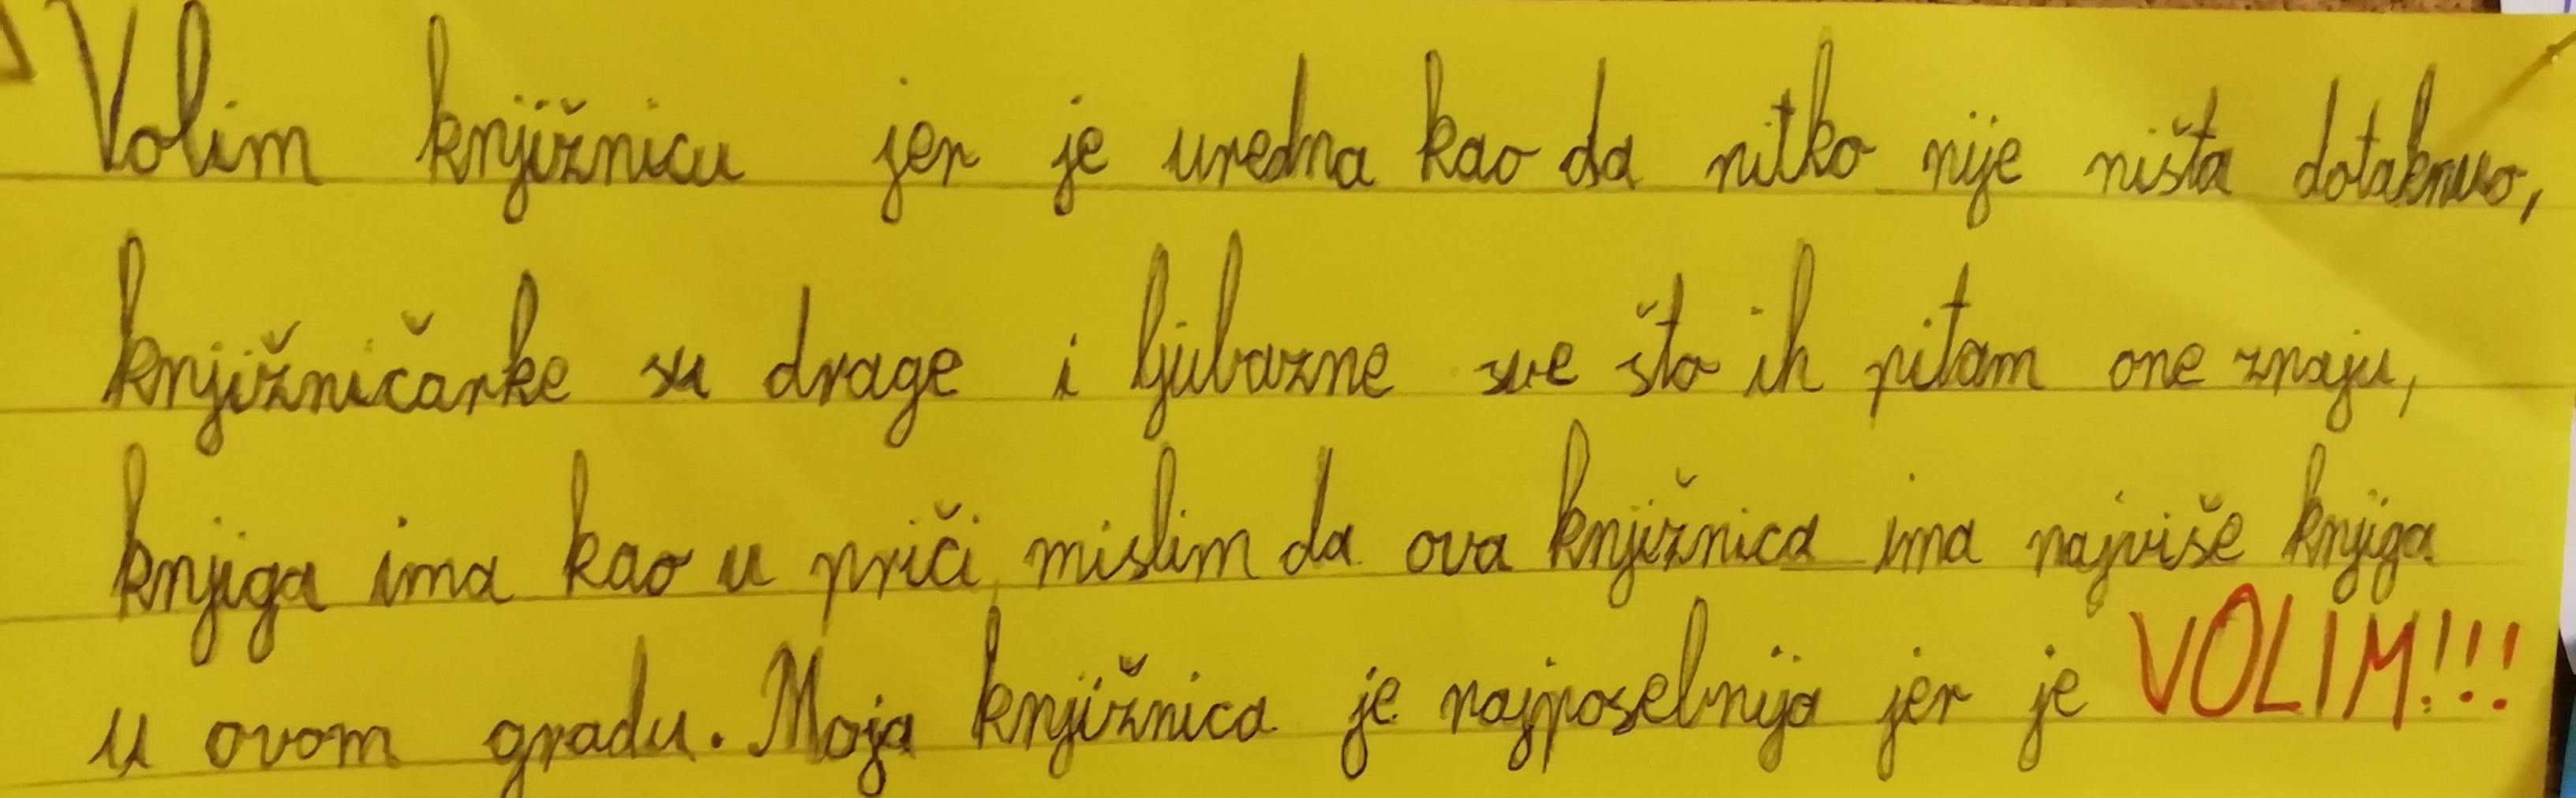 Volim knjižnicu jer je uredna kao da nitko nije ništa dotaknuo,
knjižničarke su drage i ljubazne sve što ih pitam one znaju,
knjiga ima kao u priči, mislim da ova knjižnica ima najviše knjiga
u ovom gradu. Moja knjižnica je najposebnija jer je VOLIM!!!